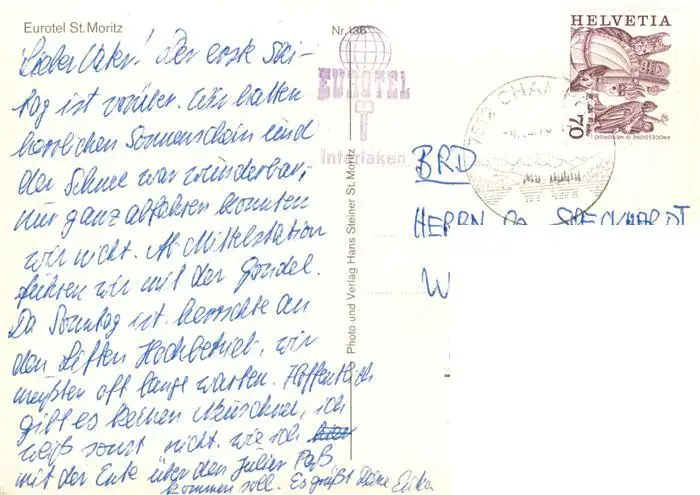 Eurotel St. Moritz
Nr. 136
Lieber Vater! Der erste Ski-
tag ist vorüber. Wir hatten
herrlichen Sonnenschein und
der Schnee war wunderbar,
nur ganz abfahren konnten
wir nicht. Ab Mittelstation
fuhren wir mit der Gondel.
Da Sonntag ist, herrschte an
den Liften Hochbetrieb, wir
mußten oft lange warten. Hoffentlich
gibt es keinen Neuschnee, ich
weiß sonst nicht, wie ich hier
mit der Ente über den Julier Paß
kommen soll. Es grüßt Deine Erika
Photo und Verlag Hans Steiner St. Moritz
EUROTEL
Interlaken
HELVETIA
70
PROCESSIONE DI MENDRISIO
CHAM
BRD
HERRN
W